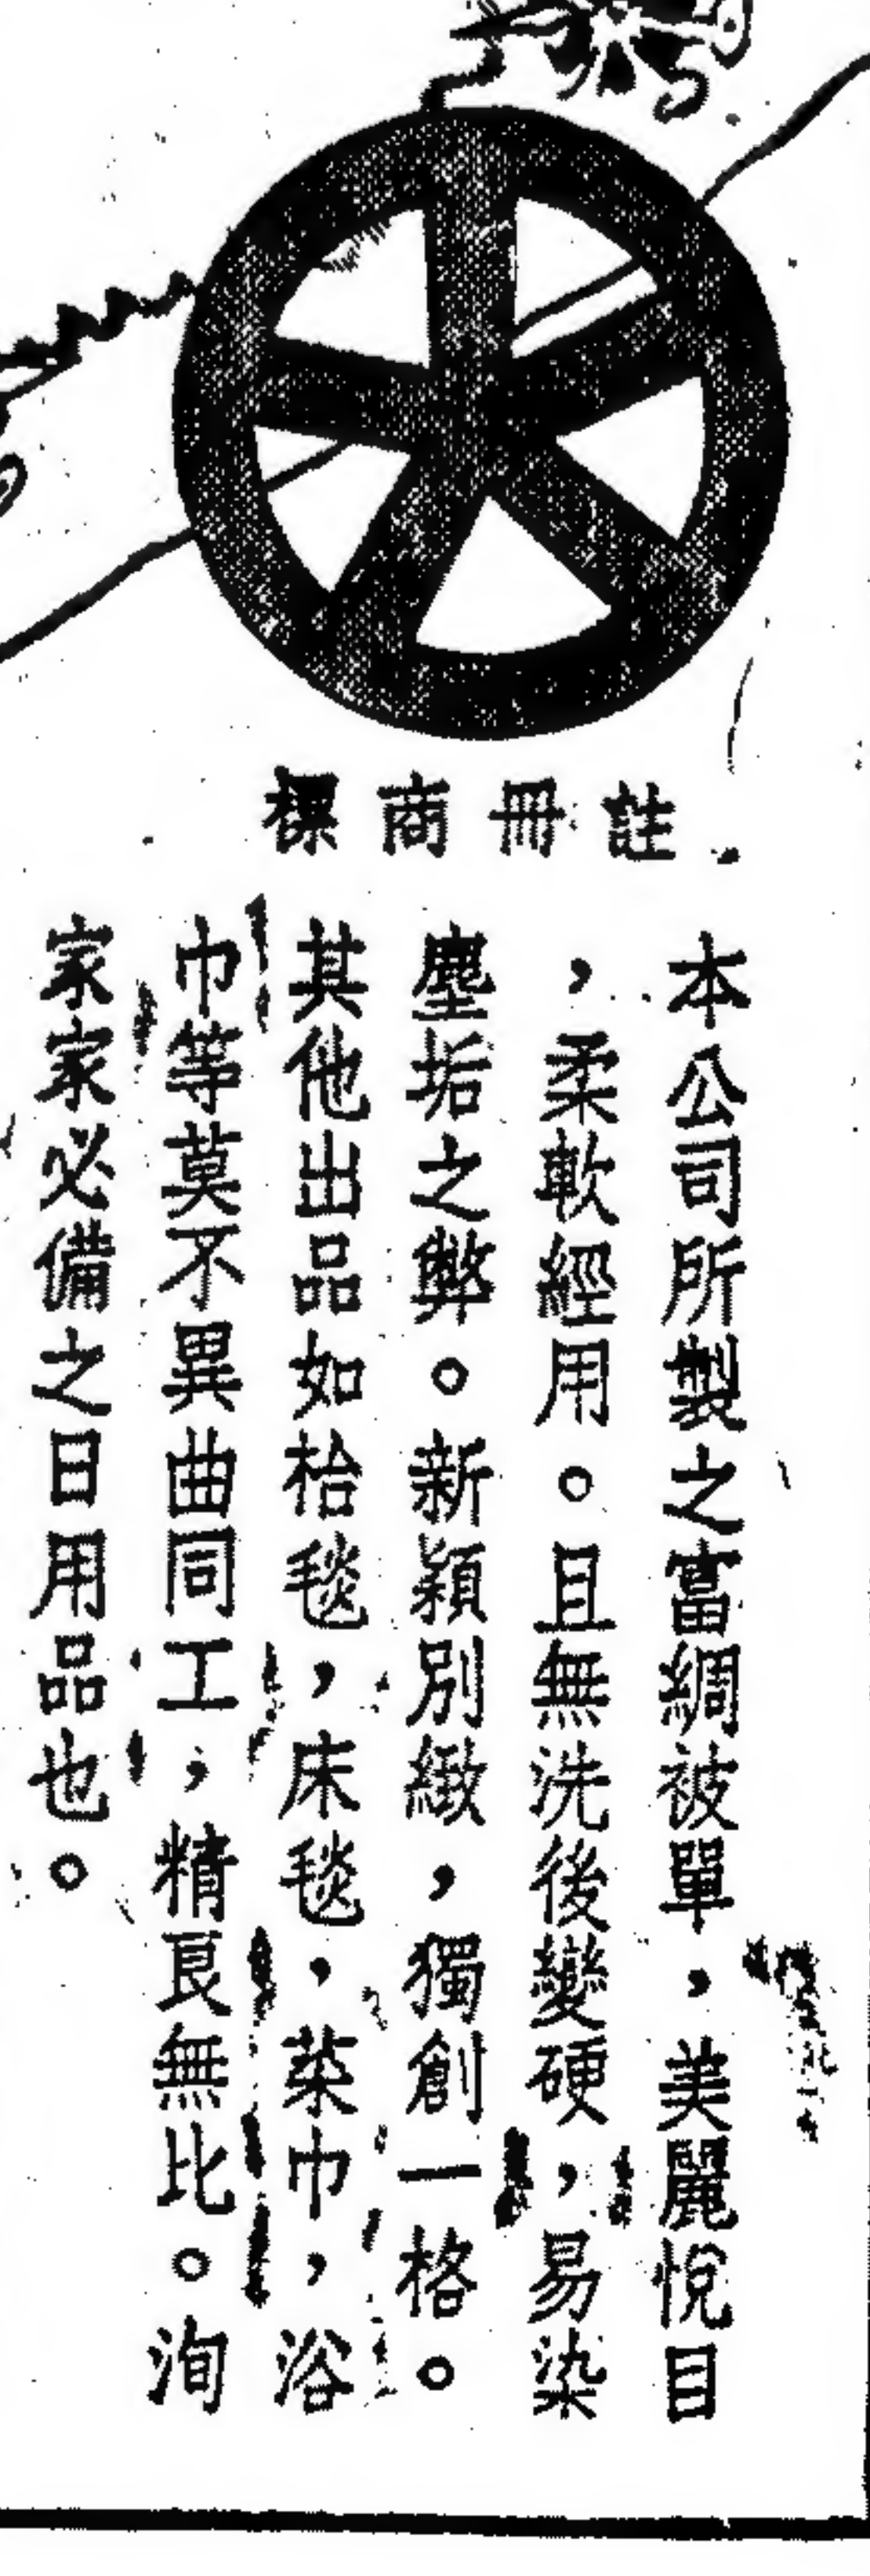 註冊商標
本公司所製之富綢被單，美麗悅目
，柔軟經用。且無洗後變硬，易染
塵垢之弊。新穎別緻，獨創一格。
其他出品如枱毯，床毯，菜巾，浴
巾等莫不異曲同工，精良無比。洵
家家必備之日用品也。